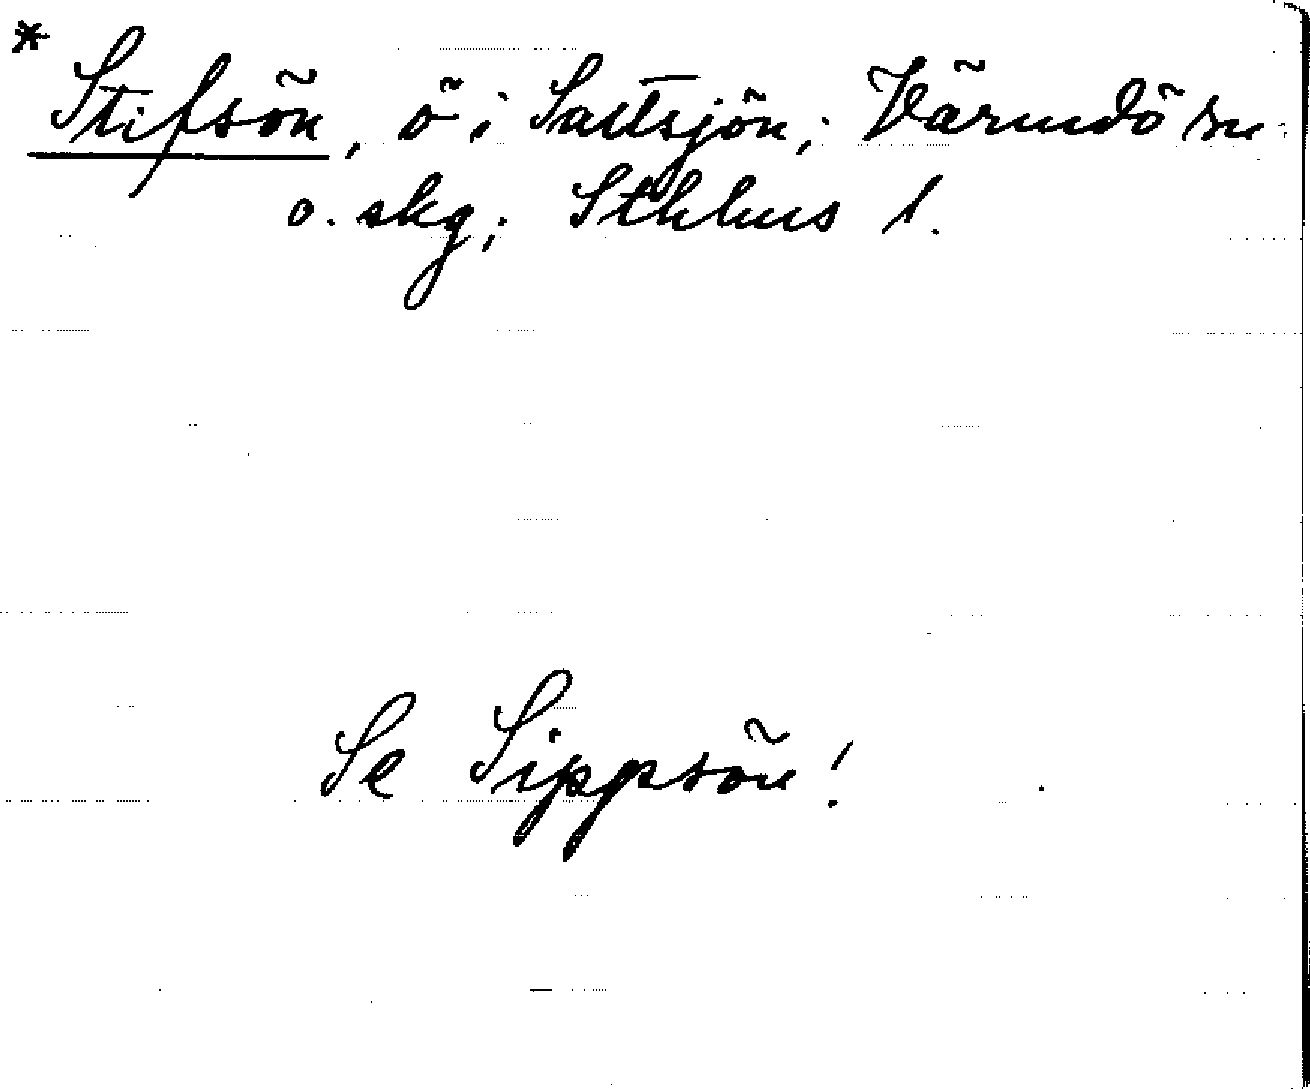 * Stifsön, ö i Saltsjön; Värmdö sn
o. skg; Sthlms l.
Se Sippsön!